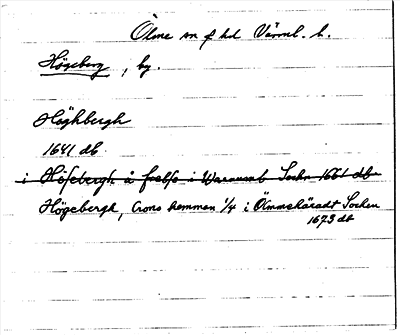 Ölme sn f hd Värml. l.
Högeberg, by.
Höghbergh
1641 db.
i Höfebergh å frelse i Warnumb Sochn 1661 db
Högebergh, Crono hemman 1/4 i Ölmmehäradt Sochen
1673 db